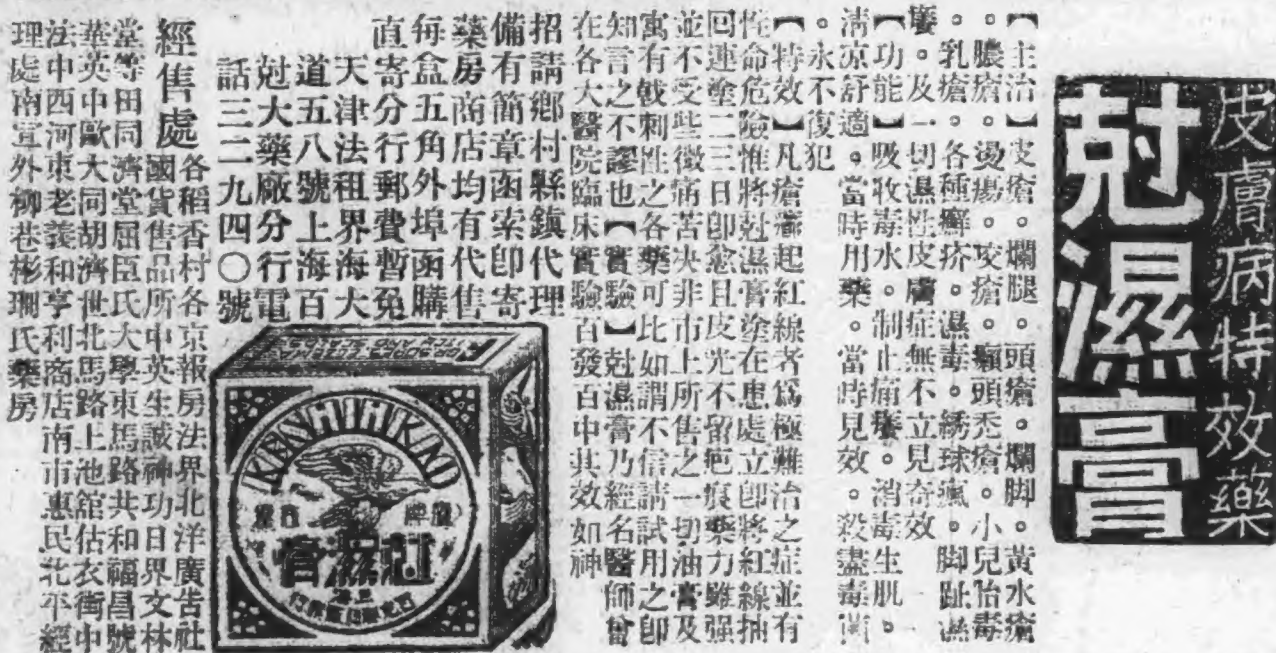 皮膚病特效藥
尅濕膏
【主治】皮瘡。爛腿。頭瘡。爛脚。黃水瘡
。膿瘡。燙瘍。咬瘡。癩頭禿瘡。小兒胎毒
。乳瘡。各種癬疥。濕毒。綉球瘋。脚趾濕
癢。及一切濕性皮膚症無不立見奇效
【功能】吸收毒水。制止痛癢。消毒生肌。
清凉舒適。當時用藥。當時見效。殺盡毒菌
。永不復犯
【特效】凡瘡癤起紅線者爲極難治之症並有
性命危險惟將尅濕膏塗在患處立卽將紅線抽
回連塗二三日卽愈且皮光不留疤痕藥力雖强
並不受些微痛苦决非市上所售之一切油膏及
寓有戟刺性之各藥可比如謂不信請試用之卽
知言之不謬也【實驗】尅濕膏乃經名醫師曾
在各大醫院臨床實驗百發百中其效如神
招請鄉村縣鎮代理
備有簡章函索卽寄
藥房商店均有代售
每盒五角外埠函購
直寄分行郵費暫免
天津法租界海大
道五八號上海百
尅大藥廠分行電
話三二九四〇號
KEKSHIHKAO
牌
尅濕膏
上海
經售處
各稻香村各京報房法界北洋廣告社
國貨售品所中英生誠神功日界文林
堂等田同濟堂屈臣氏大學東馬路共和福昌號
華英中歐大同胡濟世北馬路上池館估衣街中
法中西河東老義和亨利商店南市惠民北平經
理處南宣外柳巷彬珊氏藥房